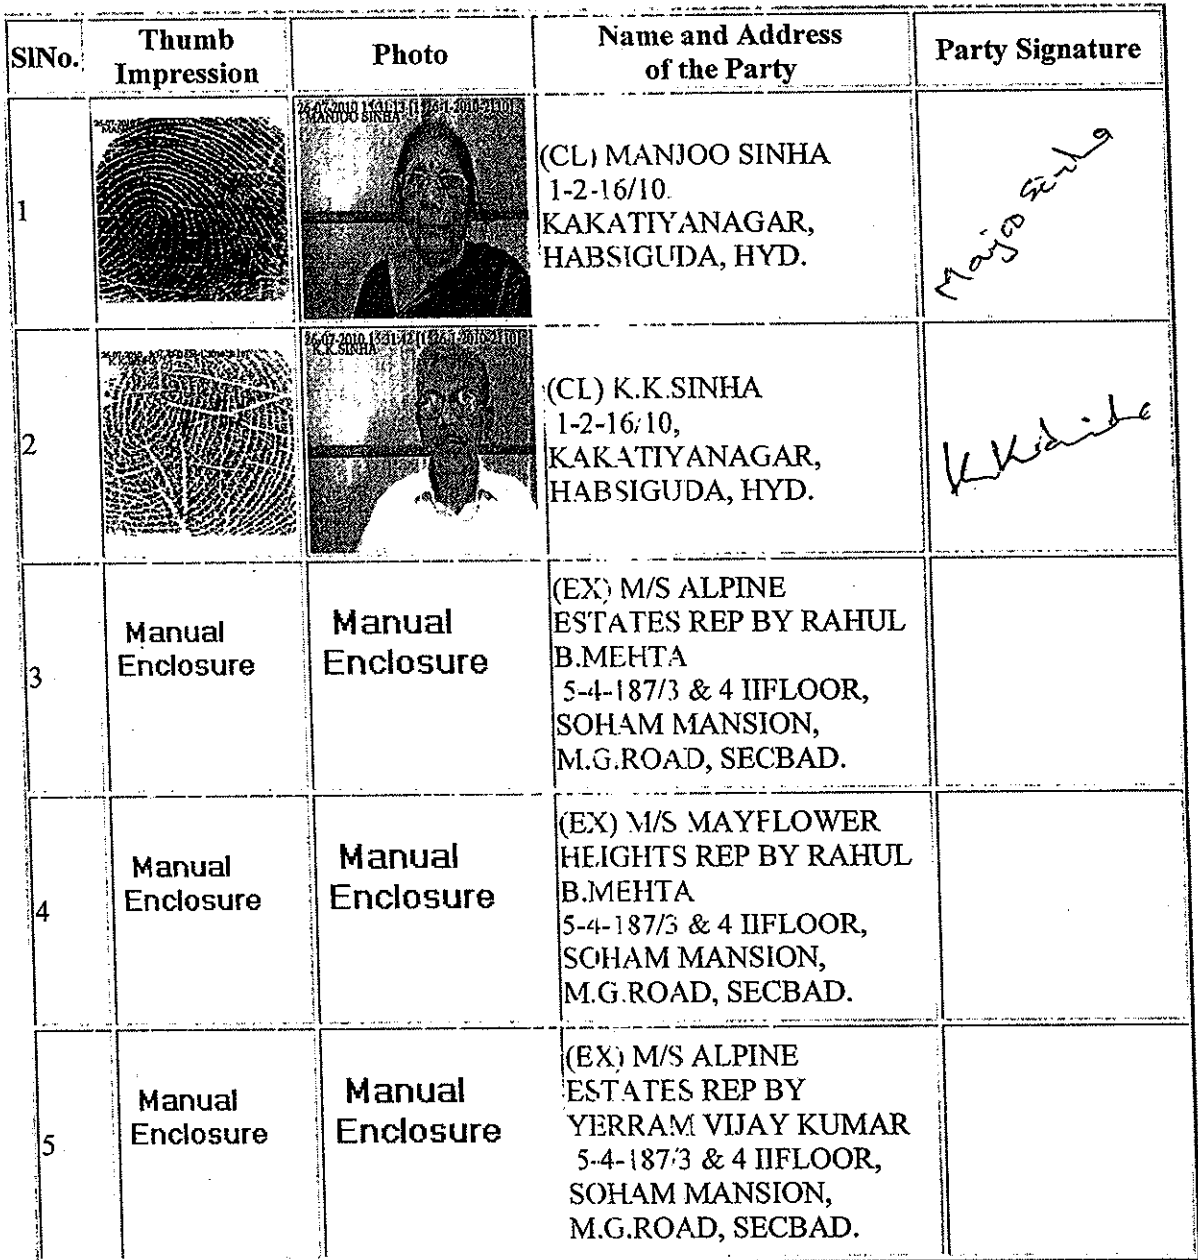 SlNo.
Thumb
Impression
Photo
Name and Address
of the Party
Party Signature
1
MANJOO SINHA
(CL) MANJOO SINHA
1-2-16/10.
KAKATIYANAGAR,
HABSIGUDA, HYD.
Manjoo Sinha
2
K.K.SINHA
(CL) K.K.SINHA
1-2-16/10,
KAKATIYANAGAR,
HABSIGUDA, HYD.
K.K.Sinha
3
Manual
Enclosure
Manual
Enclosure
(EX) M/S ALPINE
ESTATES REP BY RAHUL
B.MEHTA
5-4-187/3 & 4 IIFLOOR,
SOHAM MANSION,
M.G.ROAD, SECBAD.
4
Manual
Enclosure
Manual
Enclosure
(EX) M/S MAYFLOWER
HEIGHTS REP BY RAHUL
B.MEHTA
5-4-187/3 & 4 IIFLOOR,
SOHAM MANSION,
M.G.ROAD, SECBAD.
5
Manual
Enclosure
Manual
Enclosure
(EX) M/S ALPINE
ESTATES REP BY
YERRAM VIJAY KUMAR
5-4-187/3 & 4 IIFLOOR,
SOHAM MANSION,
M.G.ROAD, SECBAD.